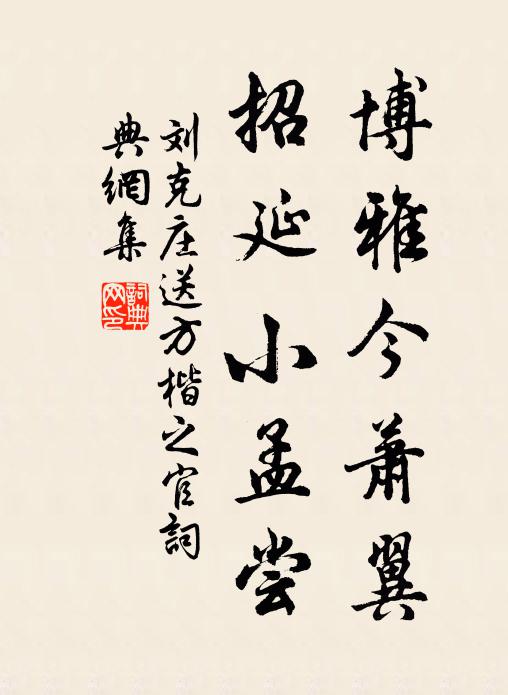 博雅今萧翼
招延小孟尝
刘克庄送方楷之官詞
典網集
詞典网印